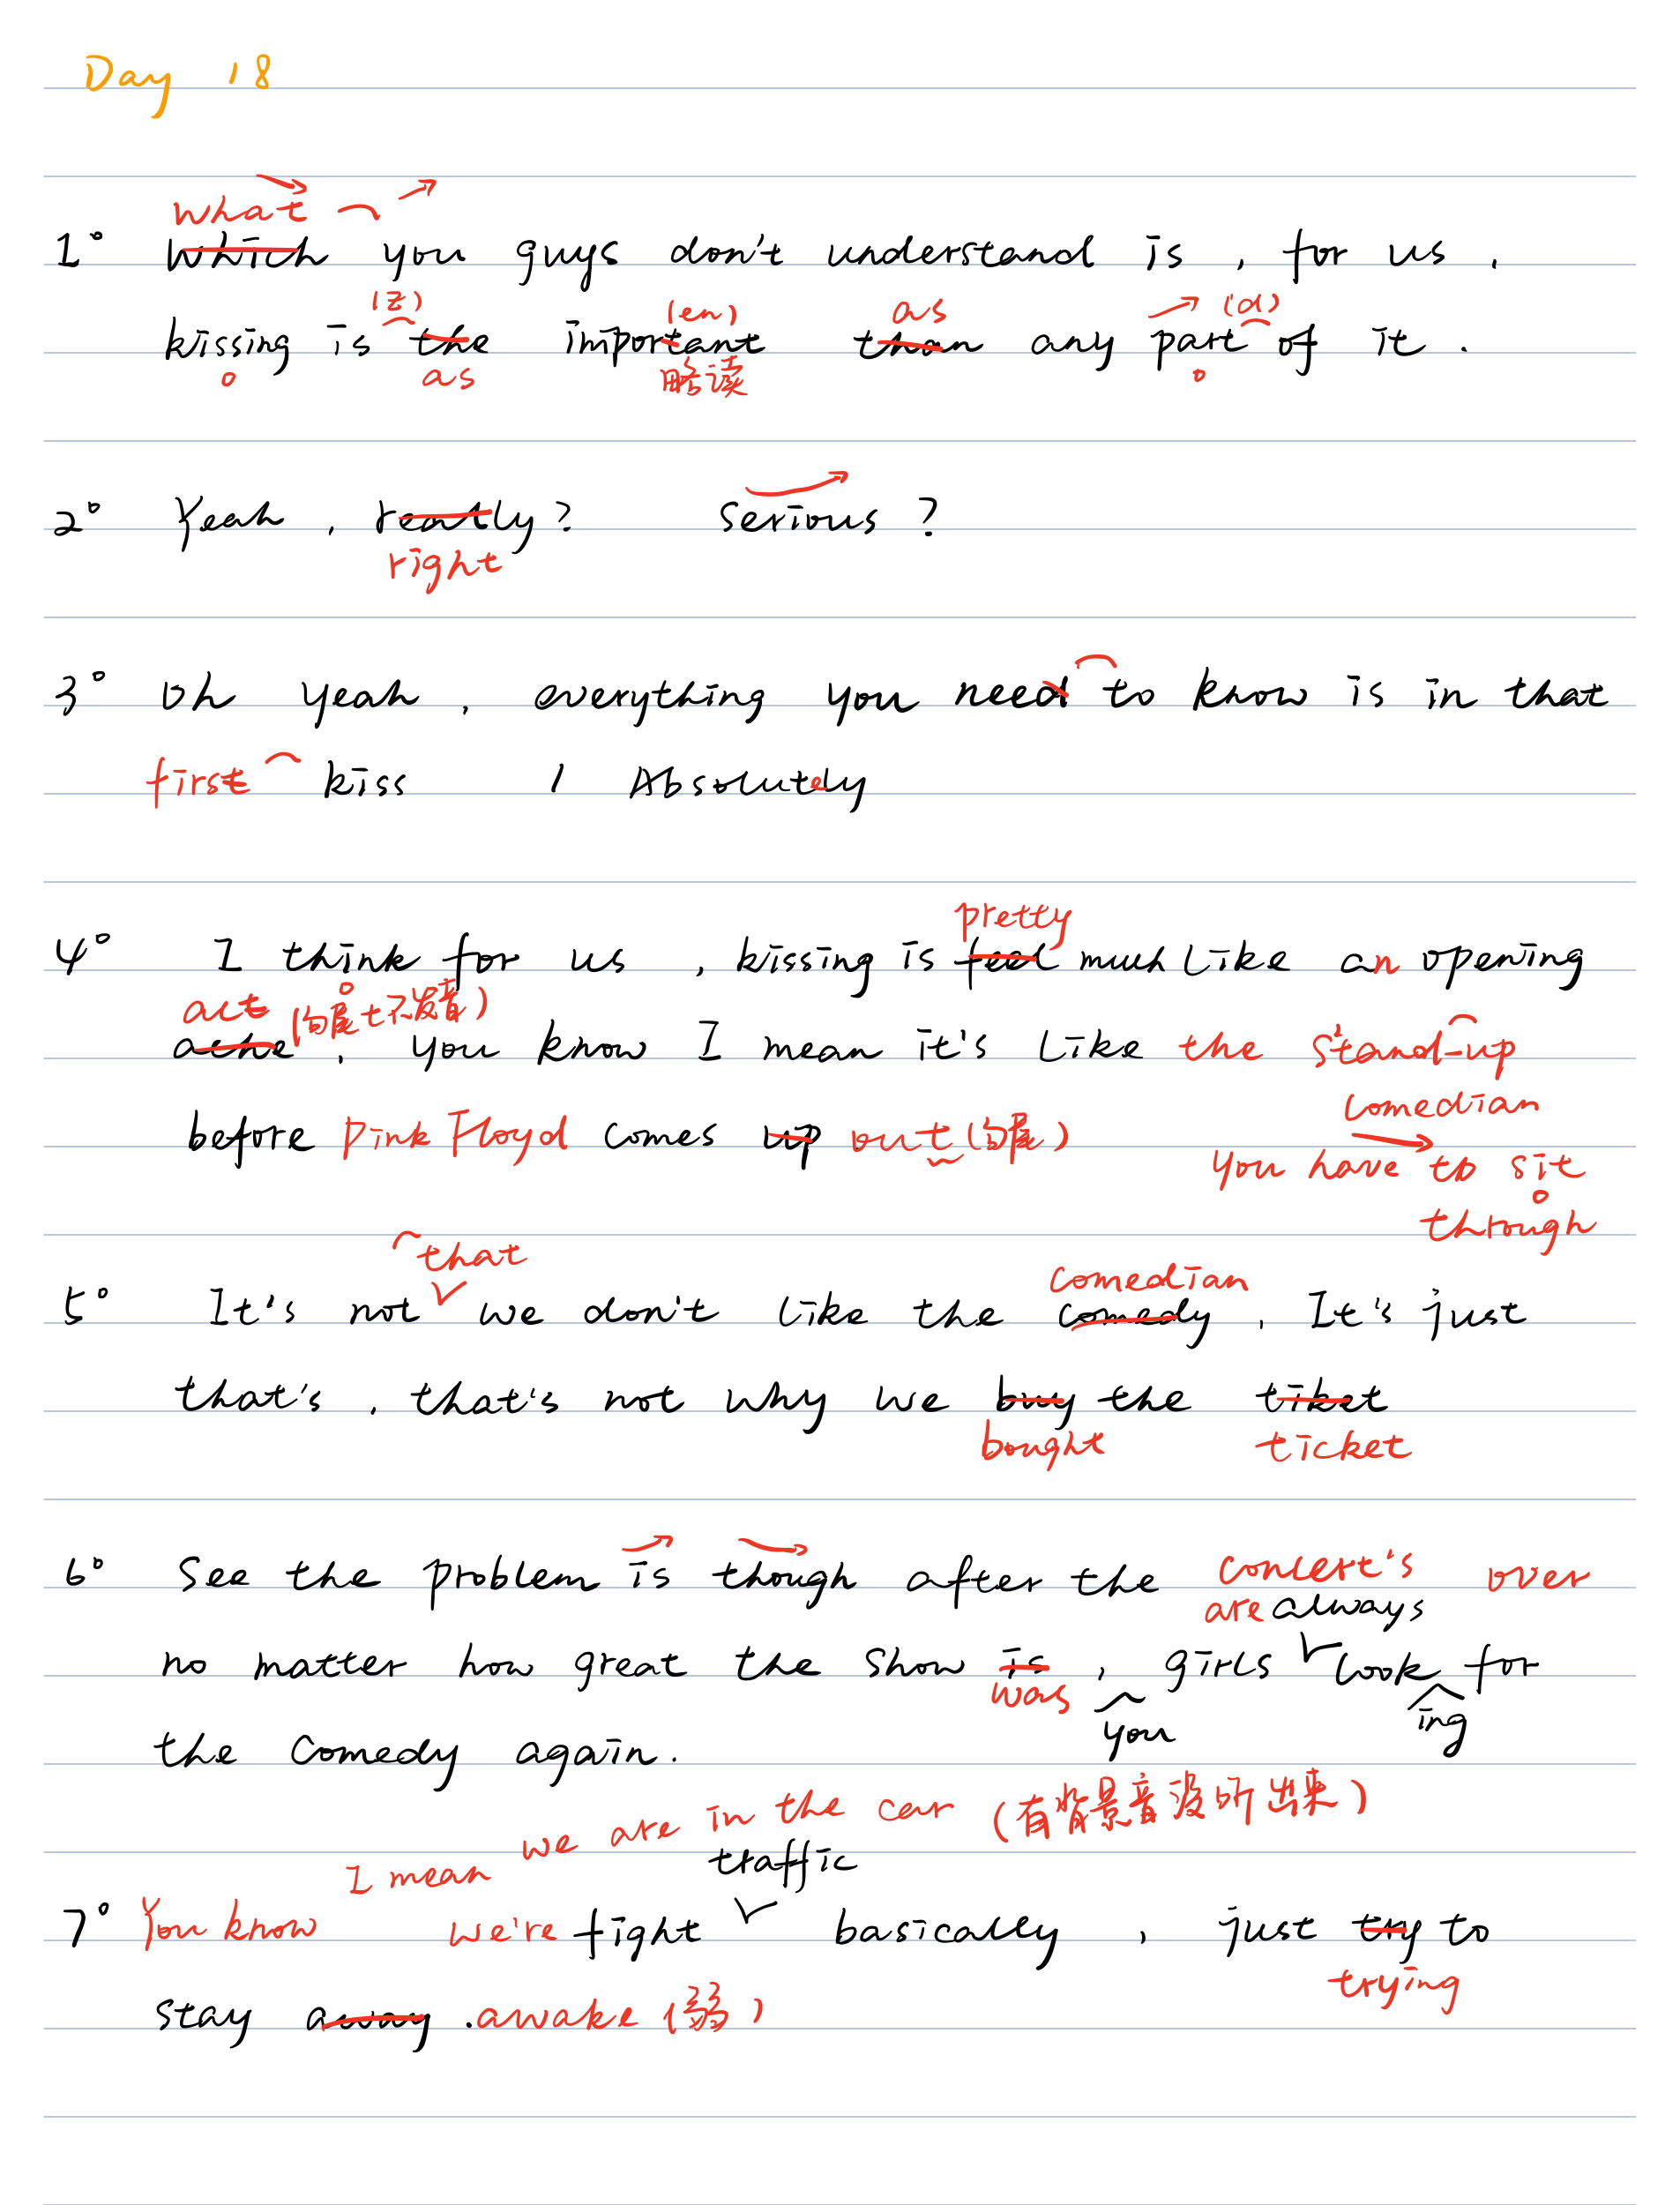 Day 18
what
1° which you guys don't understand is , for us ,
(z) (en) as (d)
kissing is the important than any part of it .
as 略读
2° Yeah , really ? Serious ?
right
3° Oh yeah , everything you need to know is in that
first kiss / Absolutely
pretty
4° I think for us , kissing is feel much like an opening
act (句尾t不发音)
ache , you know I mean it's like the stand-up
comedian
before pink Floyd comes up out (句尾)
you have to sit
through
that
comedian
5° It's not we don't like the comedy , It's just
that's , that's not why we buy the tiket
bought ticket
6° See the problem is though after the concert's over
are always
no matter how great the show is , girls look for
was you ing
the comedy again .
we are in the car (有背景音没听出来)
I mean traffic
7° You know we're fight basically , just try to
trying
stay away . awake (弱)